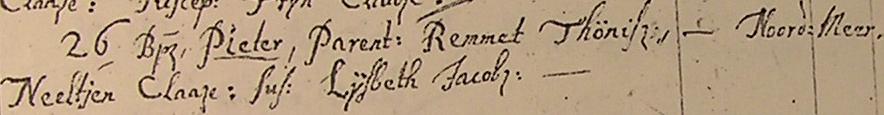 Claaze: Suscep: Tryn Claaze:
26 Bpz, Pieter, Parent: Remmet Thönisz:, — Noord: Meer.
Neeltjen Claaze: sus: Lÿsbeth Jacobz: —